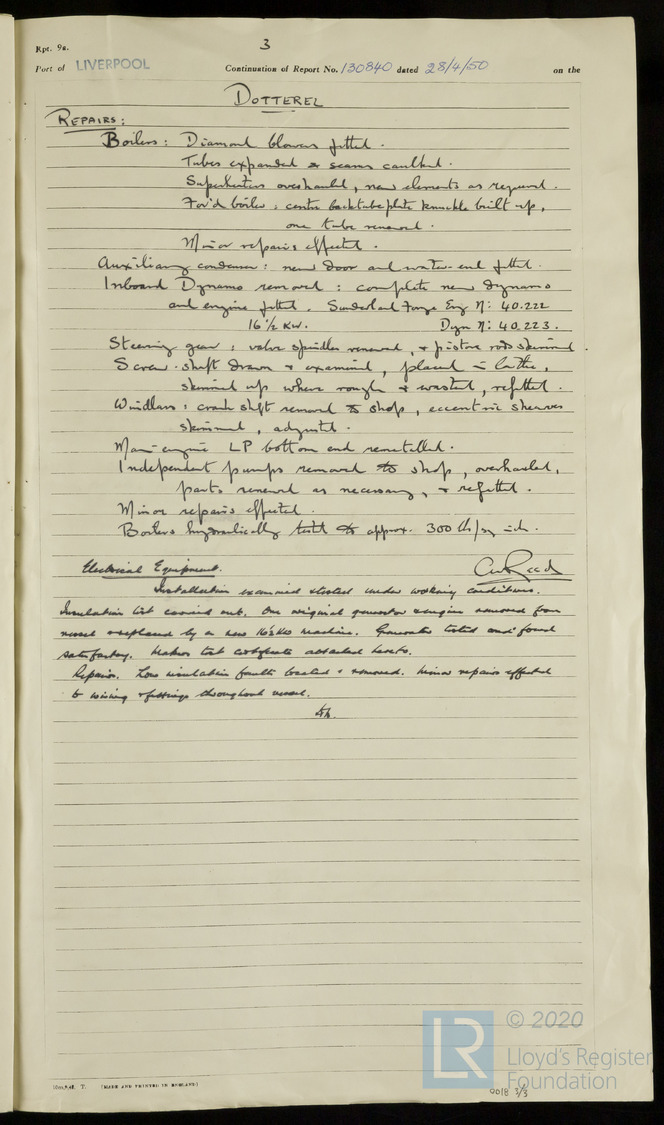 Rpt. 9a.
3
Port of LIVERPOOL Continuation of Report No. 130840 dated 28/4/50 on the
DOTTEREL
REPAIRS:
Boilers: Diamond blowers fitted.
Tubes expanded & seams caulked.
Superheaters overhauled, new elements as required.
For'd boiler: centre back tube plate knuckle built up,
one tube renewed.
Minor repairs effected.
Auxiliary condenser: new door and water-end fitted.
Inboard Dynamo removed: complete new dynamo
and engine fitted. Sunderland Forge Eng Nº: 40.222
16½ KW. Dyn Nº: 40.223.
Steering gear: valve spindles renewed, & piston rods skimmed.
Screw-shaft drawn & examined, placed in lathe,
skimmed up where rough & wasted, refitted.
Windlass: crank shaft removed to shop, eccentric sheaves
skimmed, adjusted.
Main engine LP bottom end remetalled.
Independent pumps removed to shop, overhauled,
parts renewed as necessary, & refitted.
Minor repairs effected.
Boilers hydraulically tested to approx. 300 lbs/sq inch.
Electrical Equipment.
Installation examined & tested under working conditions.
Insulation test carried out. One original generator & engine removed from
vessel & replaced by a new 16½ KW machine. Generator tested and found
satisfactory. Makers test certificate attached hereto.
Repairs. Low insulation faults located & removed. Minor repairs effected
to wiring & fittings throughout vessel.
(MADE AND PRINTED IN ENGLAND)
© 2020
LR
Lloyd's Register
Foundation
0018 3/3